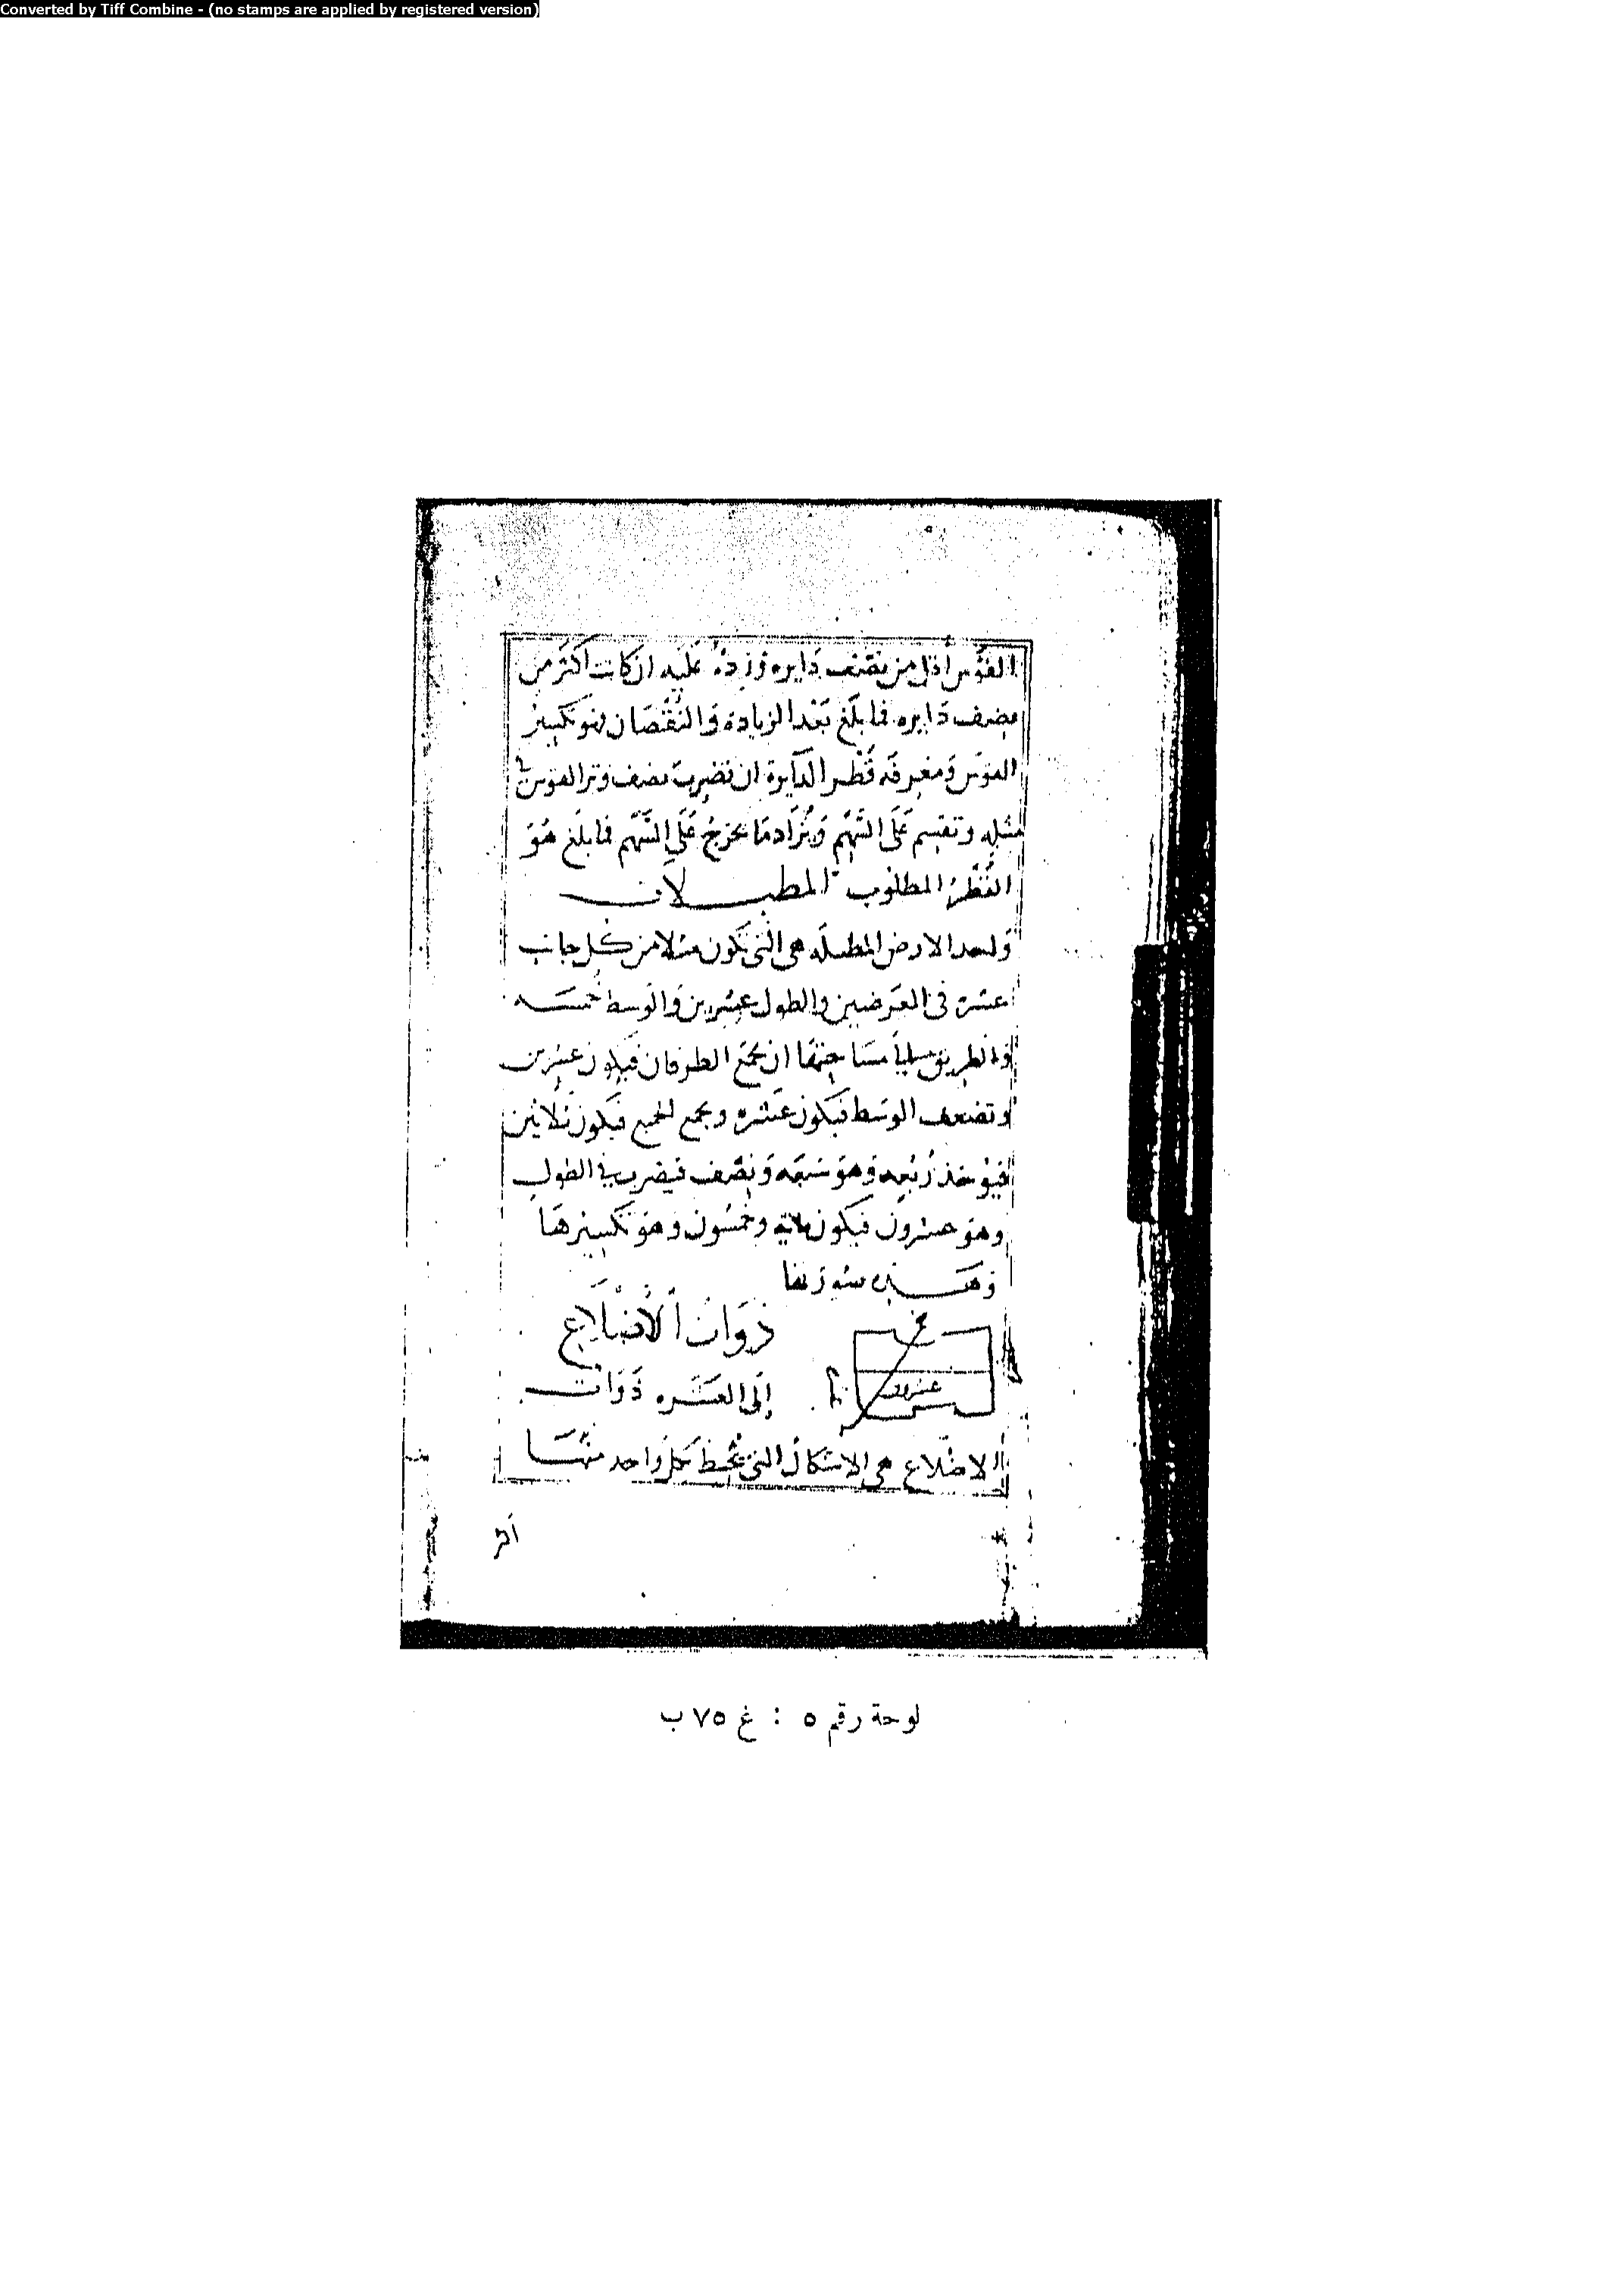 Converted by Tiff Combine - (no stamps are applied by registered version)
القوس أقل من نصف دايره وزده عليه ان كانت اكثر من
نصف دايره فما بلغ بعد الزيادة والنقصان فهو تكسير
القوس ومعرفه قطر الدايرة ان تضرب نصف وتر القوس في
مثله وتقسم على السهم ويزاد ما يخرج على السهم فما بلغ هو
القطر المطلوب المطبلات
الارض المطبله هي التي تكون مثلا من كل جانب
عشرة في العرضين والطول عشرين والوسط خمسه
والطريق مساحتها ان يجمع الطرفان فيكون عشرين
وتضعف الوسط فيكون عشره ويجمع الجميع فيكون ثلاثين
فيؤخذ ربعه وهو سبعه ونصف فيضرب في الطول
وهو عشرون فيكون مائة وخمسون وهو تكسيرها
وهذه صورتها
ذوات الأضلاع
عشرون
إلى العشره ذوات
الاضلاع هي الاشكال التي يحيط بكل واحد منها
لوحة رقم ٥ : غ ٧٥ ب